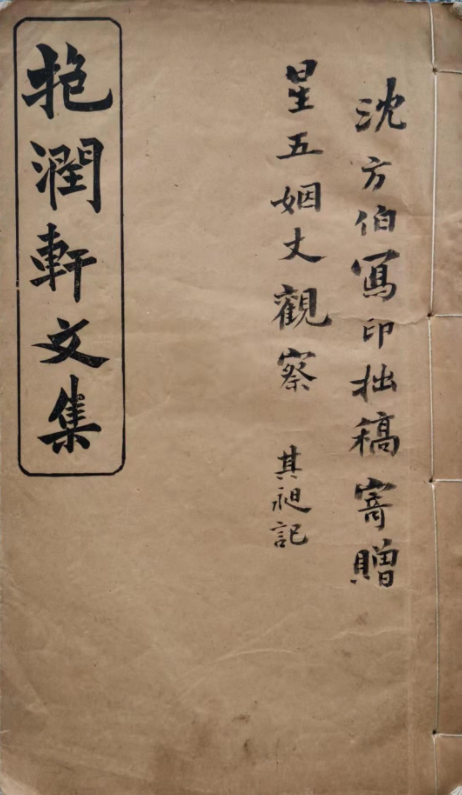 沈方伯寫印拙稿寄贈
星五姻丈觀察
其昶記
抱潤軒文集